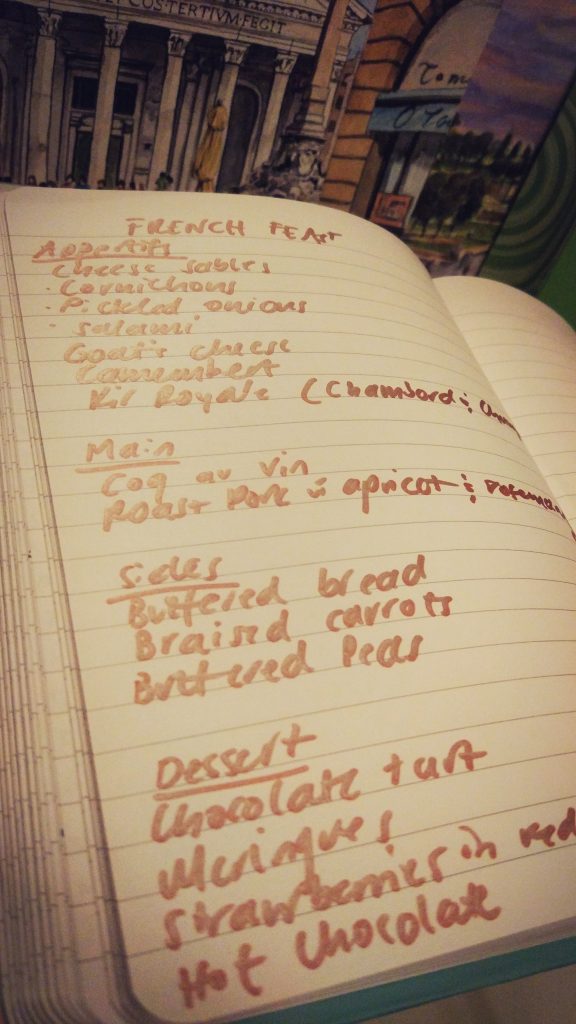 COS·TERTIVM·FECIT
FRENCH FEAST
Apperitifs
Cheese sables
· Cornichons
· Pickled onions
· Salami
Goat's cheese
Camembert
Kir Royale (Chambord &
Main
Coq au vin
Roast Pork w apricot &
Sides
Buttered bread
Braised carrots
Buttered Peas
Dessert
Chocolate tart
Meringues
Strawberries in red
Hot Chocolate